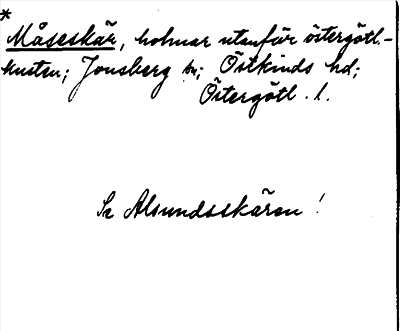 *
Måseskär, holmar utanför östergötl.-
kusten; Jonsberg sn; Östkinds hd;
Östergötl. l.
Se Alsundsskären!